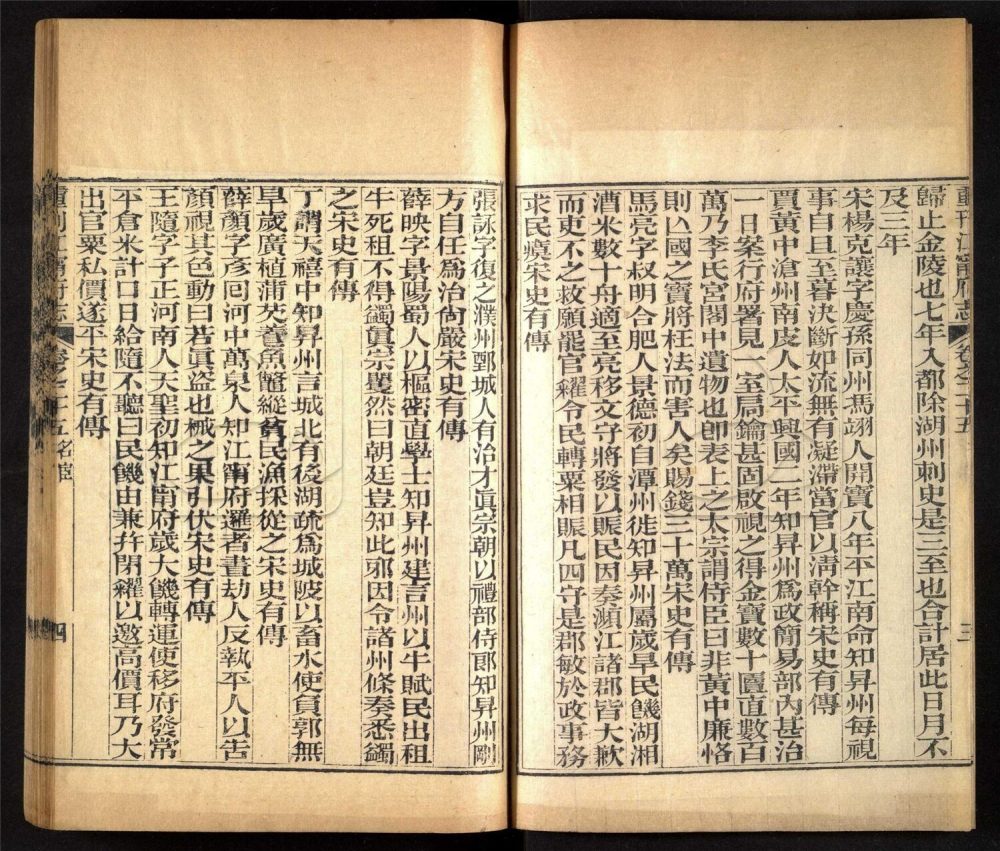 重刊江寧府志 卷之二十五 三
歸止金陵也七年入都除湖州刺史是三至也合計居此日月不
及三年
宋楊克讓字慶孫同州馮翊人開寶八年平江南命知昇州每視
事自旦至暮決斷如流無有凝滯當官以淸幹稱宋史有傳
賈黃中滄州南皮人太平興國二年知昇州爲政簡易部內甚治
一日案行府署見一室扃鑰甚固啟視之得金寶數十匱直數百
萬乃李氏宮閣中遺物也卽表上之太宗謂侍臣曰非黃中廉恪
則亾國之寶將枉法而害人矣賜錢三十萬宋史有傳
馬亮字叔明合肥人景德初自潭州徙知昇州屬歲旱民饑湖湘
漕米數十舟適至亮移文守將發以賑民因奏瀕江諸郡皆大歉
而吏不之救願罷官糴令民轉粟相賑凡四守是郡敏於政事務
求民瘼宋史有傳
張詠字復之濮州鄄城人有治才眞宗朝以禮部侍郎知昇州剛
方自任爲治尙嚴宋史有傳
薛映字景陽蜀人以樞密直學士知昇州建言州以牛賦民出租
牛死租不得蠲眞宗矍然曰朝廷豈知此邪因令諸州條奏悉蠲
之宋史有傳
丁謂天禧中知昇州言城北有後湖疏爲城陂以畜水使負郭無
旱歲廣植蒲芡養魚鱉縱貧民漁採從之宋史有傳
薛顏字彥囘河中萬泉人知江甯府邏者晝劫人反執平人以告
顏視其色動曰若眞盜也械之果引伏宋史有傳
王隨字子正河南人天聖初知江甯府歲大饑轉運使移府發常
平倉米計口日給隨不聽曰民饑由兼幷閉糴以邀高價耳乃大
出官粟私價遂平宋史有傳
重刊江甯府志 卷之二十五名宦 四